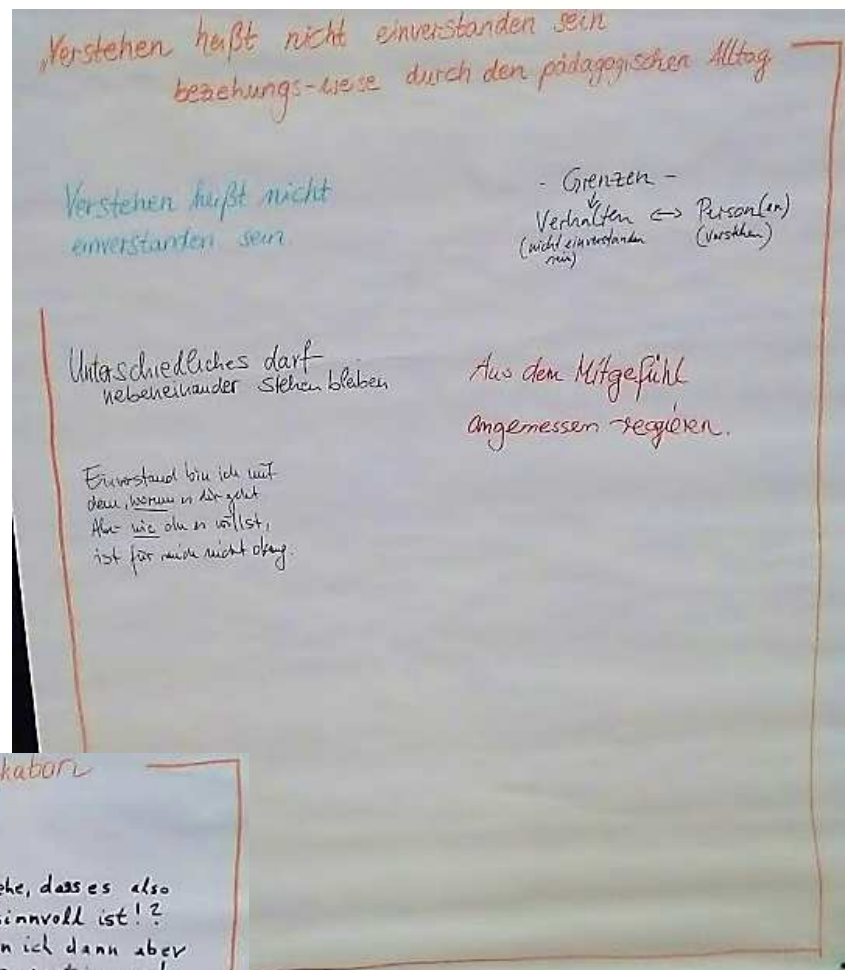 „Verstehen heißt nicht einverstanden sein
beziehungs-weise durch den pädagogischen Alltag
Verstehen heißt nicht
einverstanden sein
- Grenzen -
Verhalten ↔ Person(en)
(nicht einverstanden
sein)
(verstehen)
Unterschiedliches darf
nebeneinander stehen bleiben
Aus dem Mitgefühl
angemessen reagieren.
Einverstand bin ich mit
dem, worum es dir geht
Aber wie du es willst,
ist für mich nicht okay.
kation
ehe, dass es also
sinnvoll ist!?
n ich dann aber